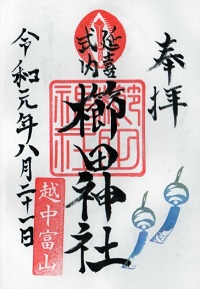 奉拝
延喜
式内
櫛田神社
令和元年八月二十一日
越中富山